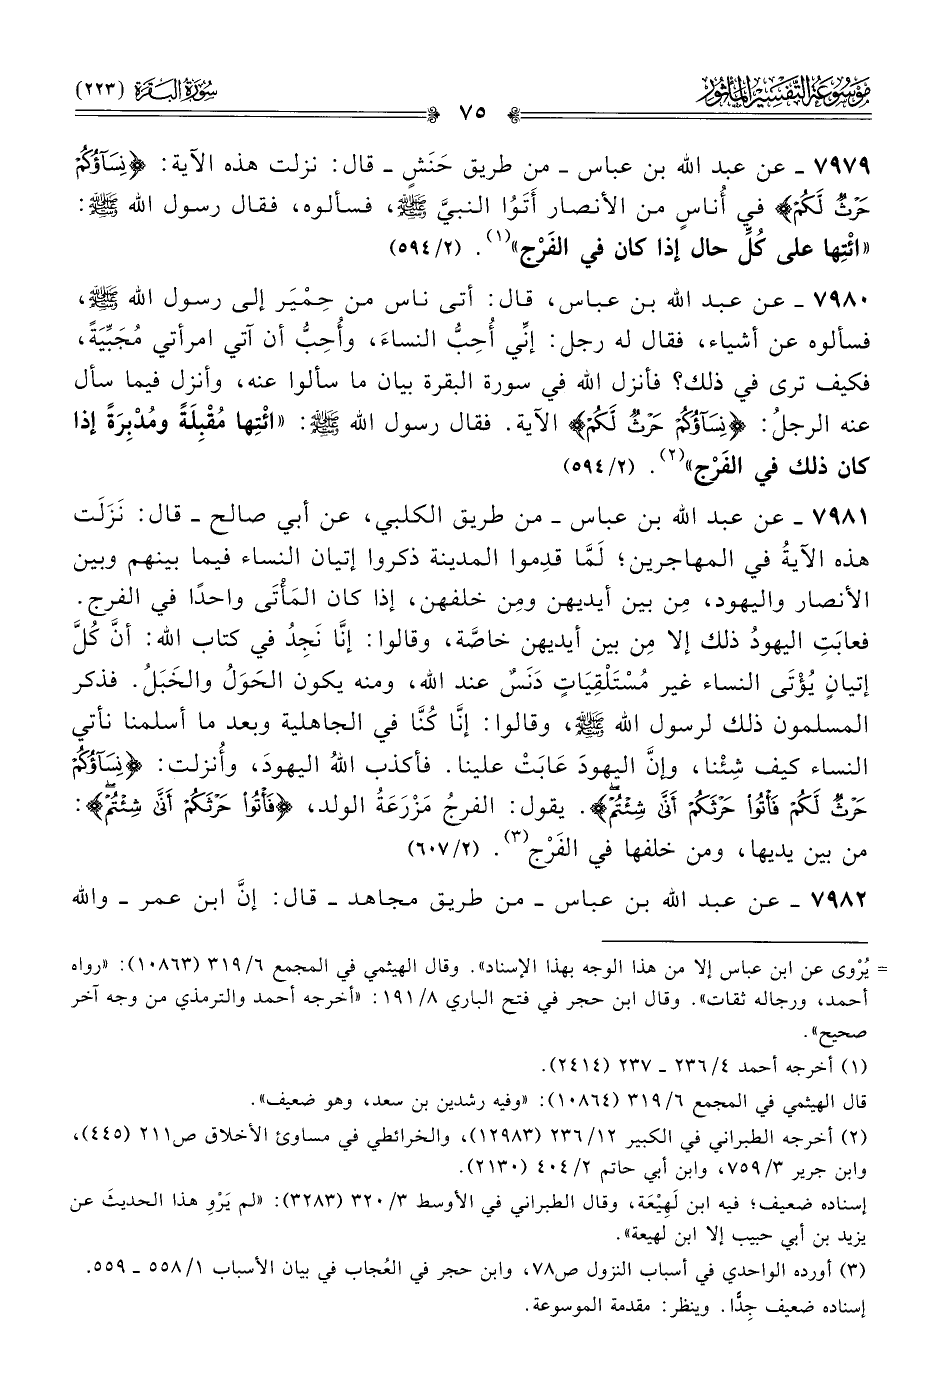 مَوْسُوعَةُ التَّفْسِيرِ المَأْثُورِ
٧٥
سُورَةُ البَقَرَة (٢٢٣)
٧٩٧٩ ـ عن عبد الله بن عباس ـ من طريق حَنَشٍ ـ قال: نزلت هذه الآية: ﴿نِسَآؤُكُمْ
حَرْثٌ لَّكُمْ﴾ في أُناسٍ من الأنصار أَتَوُا النبيَّ ﷺ، فسألوه، فقال رسول الله ﷺ:
«ائْتِها على كُلِّ حال إذا كان في الفَرْج»(١). (٥٩٤/٢)
٧٩٨٠ ـ عن عبد الله بن عباس، قال: أتى ناس من حِمْيَر إلى رسول الله ﷺ،
فسألوه عن أشياء، فقال له رجل: إنِّي أُحِبُّ النساءَ، وأُحِبُّ أن آتي امرأتي مُجَبِّيَةً،
فكيف ترى في ذلك؟ فأنزل الله في سورة البقرة بيان ما سألوا عنه، وأنزل فيما سأل
عنه الرجلُ: ﴿نِسَآؤُكُمْ حَرْثٌ لَّكُمْ﴾ الآية. فقال رسول الله ﷺ: «ائْتِها مُقْبِلَةً ومُدْبِرَةً إذا
كان ذلك في الفَرْج»(٢). (٥٩٤/٢)
٧٩٨١ ـ عن عبد الله بن عباس ـ من طريق الكلبي، عن أبي صالح ـ قال: نَزَلَت
هذه الآيةُ في المهاجرين؛ لَمَّا قدِموا المدينة ذكروا إتيان النساء فيما بينهم وبين
الأنصار واليهود، مِن بين أيديهن ومِن خلفهن، إذا كان المَأْتَى واحدًا في الفرج.
فعابَتِ اليهودُ ذلك إلا مِن بين أيديهن خاصَّة، وقالوا: إنَّا نَجِدُ في كتاب الله: أنَّ كُلَّ
إتيانٍ يُؤْتَى النساء غير مُسْتَلْقِيَاتٍ دَنَسٌ عند الله، ومنه يكون الحَوَلُ والخَبَلُ. فذكر
المسلمون ذلك لرسول الله ﷺ، وقالوا: إنَّا كُنَّا في الجاهلية وبعد ما أسلمنا نأتي
النساء كيف شِئْنا، وإنَّ اليهودَ عَابَتْ علينا. فأكذب اللهُ اليهودَ، وأُنزلت: ﴿نِسَآؤُكُمْ
حَرْثٌ لَّكُمْ فَأْتُوا۟ حَرْثَكُمْ أَنَّىٰ شِئْتُمْ﴾. يقول: الفرجُ مَزْرَعَةُ الولد، ﴿فَأْتُوا۟ حَرْثَكُمْ أَنَّىٰ شِئْتُمْ﴾:
من بين يديها، ومن خلفها في الفَرْج(٣). (٦٠٧/٢)
٧٩٨٢ ـ عن عبد الله بن عباس ـ من طريق مجاهد ـ قال: إنَّ ابن عمر ـ والله
= يُرْوى عن ابن عباس إلا من هذا الوجه بهذا الإسناد». وقال الهيثمي في المجمع ٣١٩/٦ (١٠٨٦٣): «رواه
أحمد، ورجاله ثقات». وقال ابن حجر في فتح الباري ١٩١/٨: «أخرجه أحمد والترمذي من وجه آخر
صحيح».
(١) أخرجه أحمد ٢٣٦/٤ ـ ٢٣٧ (٢٤١٤).
قال الهيثمي في المجمع ٣١٩/٦ (١٠٨٦٤): «وفيه رشدين بن سعد، وهو ضعيف».
(٢) أخرجه الطبراني في الكبير ٢٣٦/١٢ (١٢٩٨٣)، والخرائطي في مساوئ الأخلاق ص٢١١ (٤٤٥)،
وابن جرير ٧٥٩/٣، وابن أبي حاتم ٤٠٤/٢ (٢١٣٠).
إسناده ضعيف؛ فيه ابن لَهِيْعَة، وقال الطبراني في الأوسط ٣٢٠/٣ (٣٢٨٣): «لم يَرْوِ هذا الحديثَ عن
يزيد بن أبي حبيب إلا ابن لهيعة».
(٣) أورده الواحدي في أسباب النزول ص٧٨، وابن حجر في العُجاب في بيان الأسباب ٥٥٨/١ ـ ٥٥٩.
إسناده ضعيف جِدًّا. وينظر: مقدمة الموسوعة.